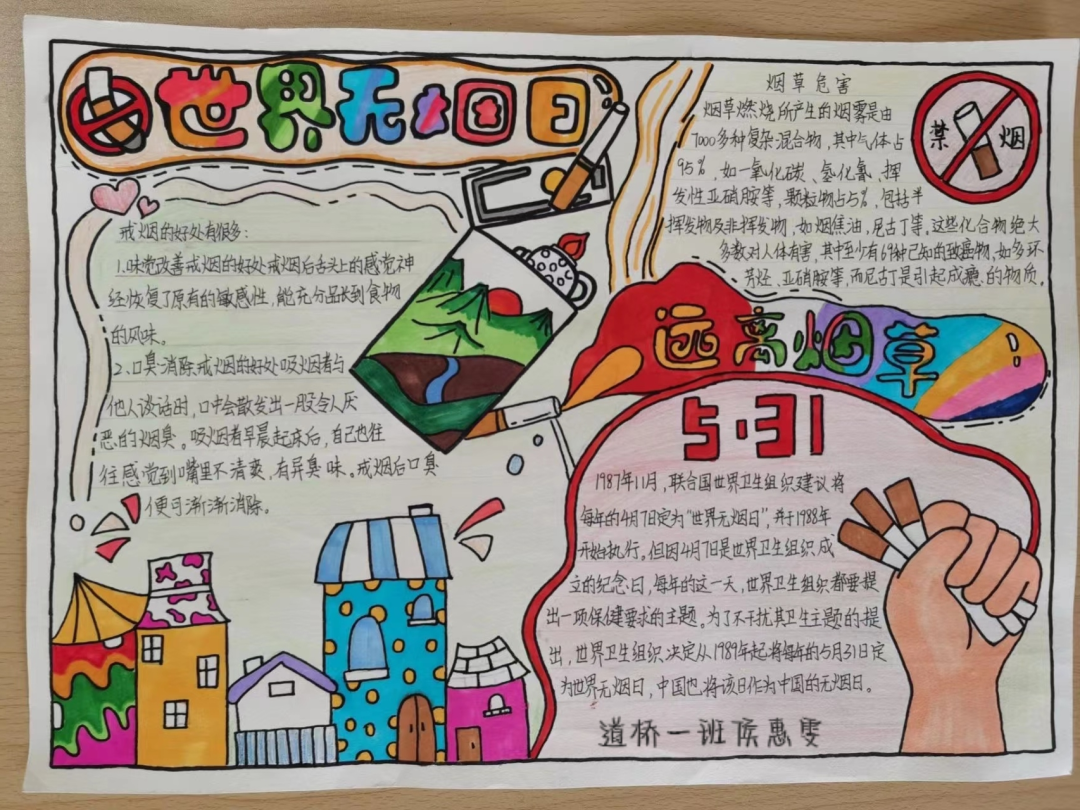 世界无烟日
戒烟的好处有很多：
1.味觉改善戒烟的好处戒烟后舌头上的感觉神
经恢复了原有的敏感性，能充分品长到食物
的风味。
2、口臭消除戒烟的好处吸烟者与
他人谈话时，口中会散发出一股令人厌
恶的烟臭。吸烟者早晨起床后，自己也往
往感觉到嘴里不清爽，有异臭味。戒烟后口臭
便可渐渐消除。
烟草危害
烟草燃烧所产生的烟雾是由
7000多种复杂混合物，其中气体占
95%，如一氧化碳、氢化氰、挥
发性亚硝胺等，颗粒物占5%，包括半
挥发物及非挥发物，如烟焦油，尼古丁等，这些化合物绝大
多数对人体有害，其中至少有69种已知的致癌物，如多环
芳烃、亚硝胺等，而尼古丁是引起成瘾的物质。
禁烟
远离烟草
5·31
1987年11月，联合国世界卫生组织建议将
每年的4月7日定为“世界无烟日”，并于1988年
开始执行。但因4月7日是世界卫生组织成
立的纪念日，每年的这一天，世界卫生组织都要提
出一项保健要求的主题。为了不干扰其卫生主题的提
出，世界卫生组织决定从1989年起将每年的5月31日定
为世界无烟日，中国也将该日作为中国的无烟日。
道桥一班侯惠雯